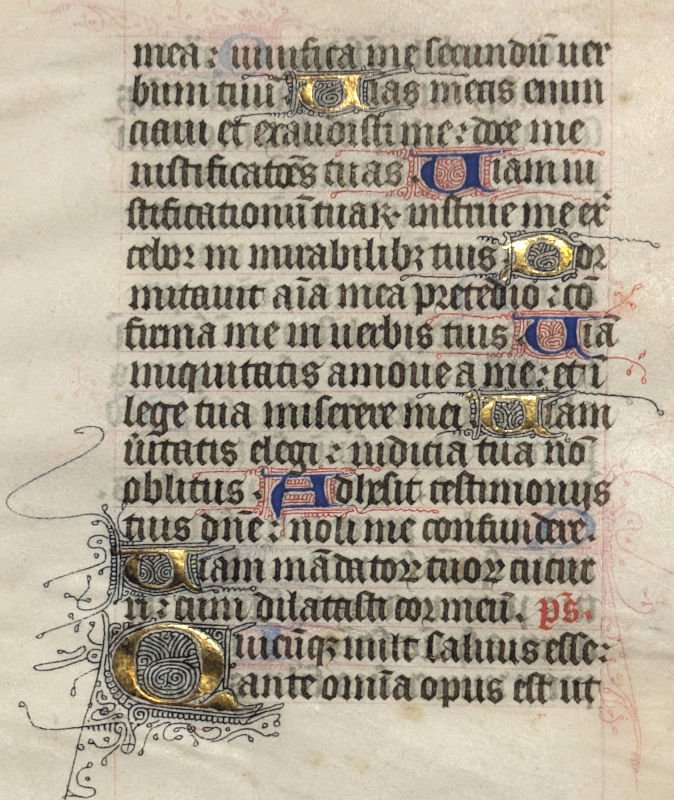 mea: viuifica me secundū uer
bum tuū Uias meas enun
ciaui et exaudisti me: doce me
iustificatōes tuas Uiam iu
stificationū tuaꝝ instrue me et exer
cebor in mirabilibꝫ tuis Dor
mitauit aīa mea pre tedio: cō
firma me in uerbis tuis Uiā
iniquitatis amoue a me: et ī
lege tua miserere mei Uiam
ūitatis elegi: iudicia tua nō
oblitus Adhesit testimonijs
tuis dn̄e: noli me confundere.
Uiam mādatoꝝ tuoꝝ cucur
ri: cum dilatasti cor meū. ps̄.
Quicūqꝫ uult saluus esse:
ante omīa opus est ut